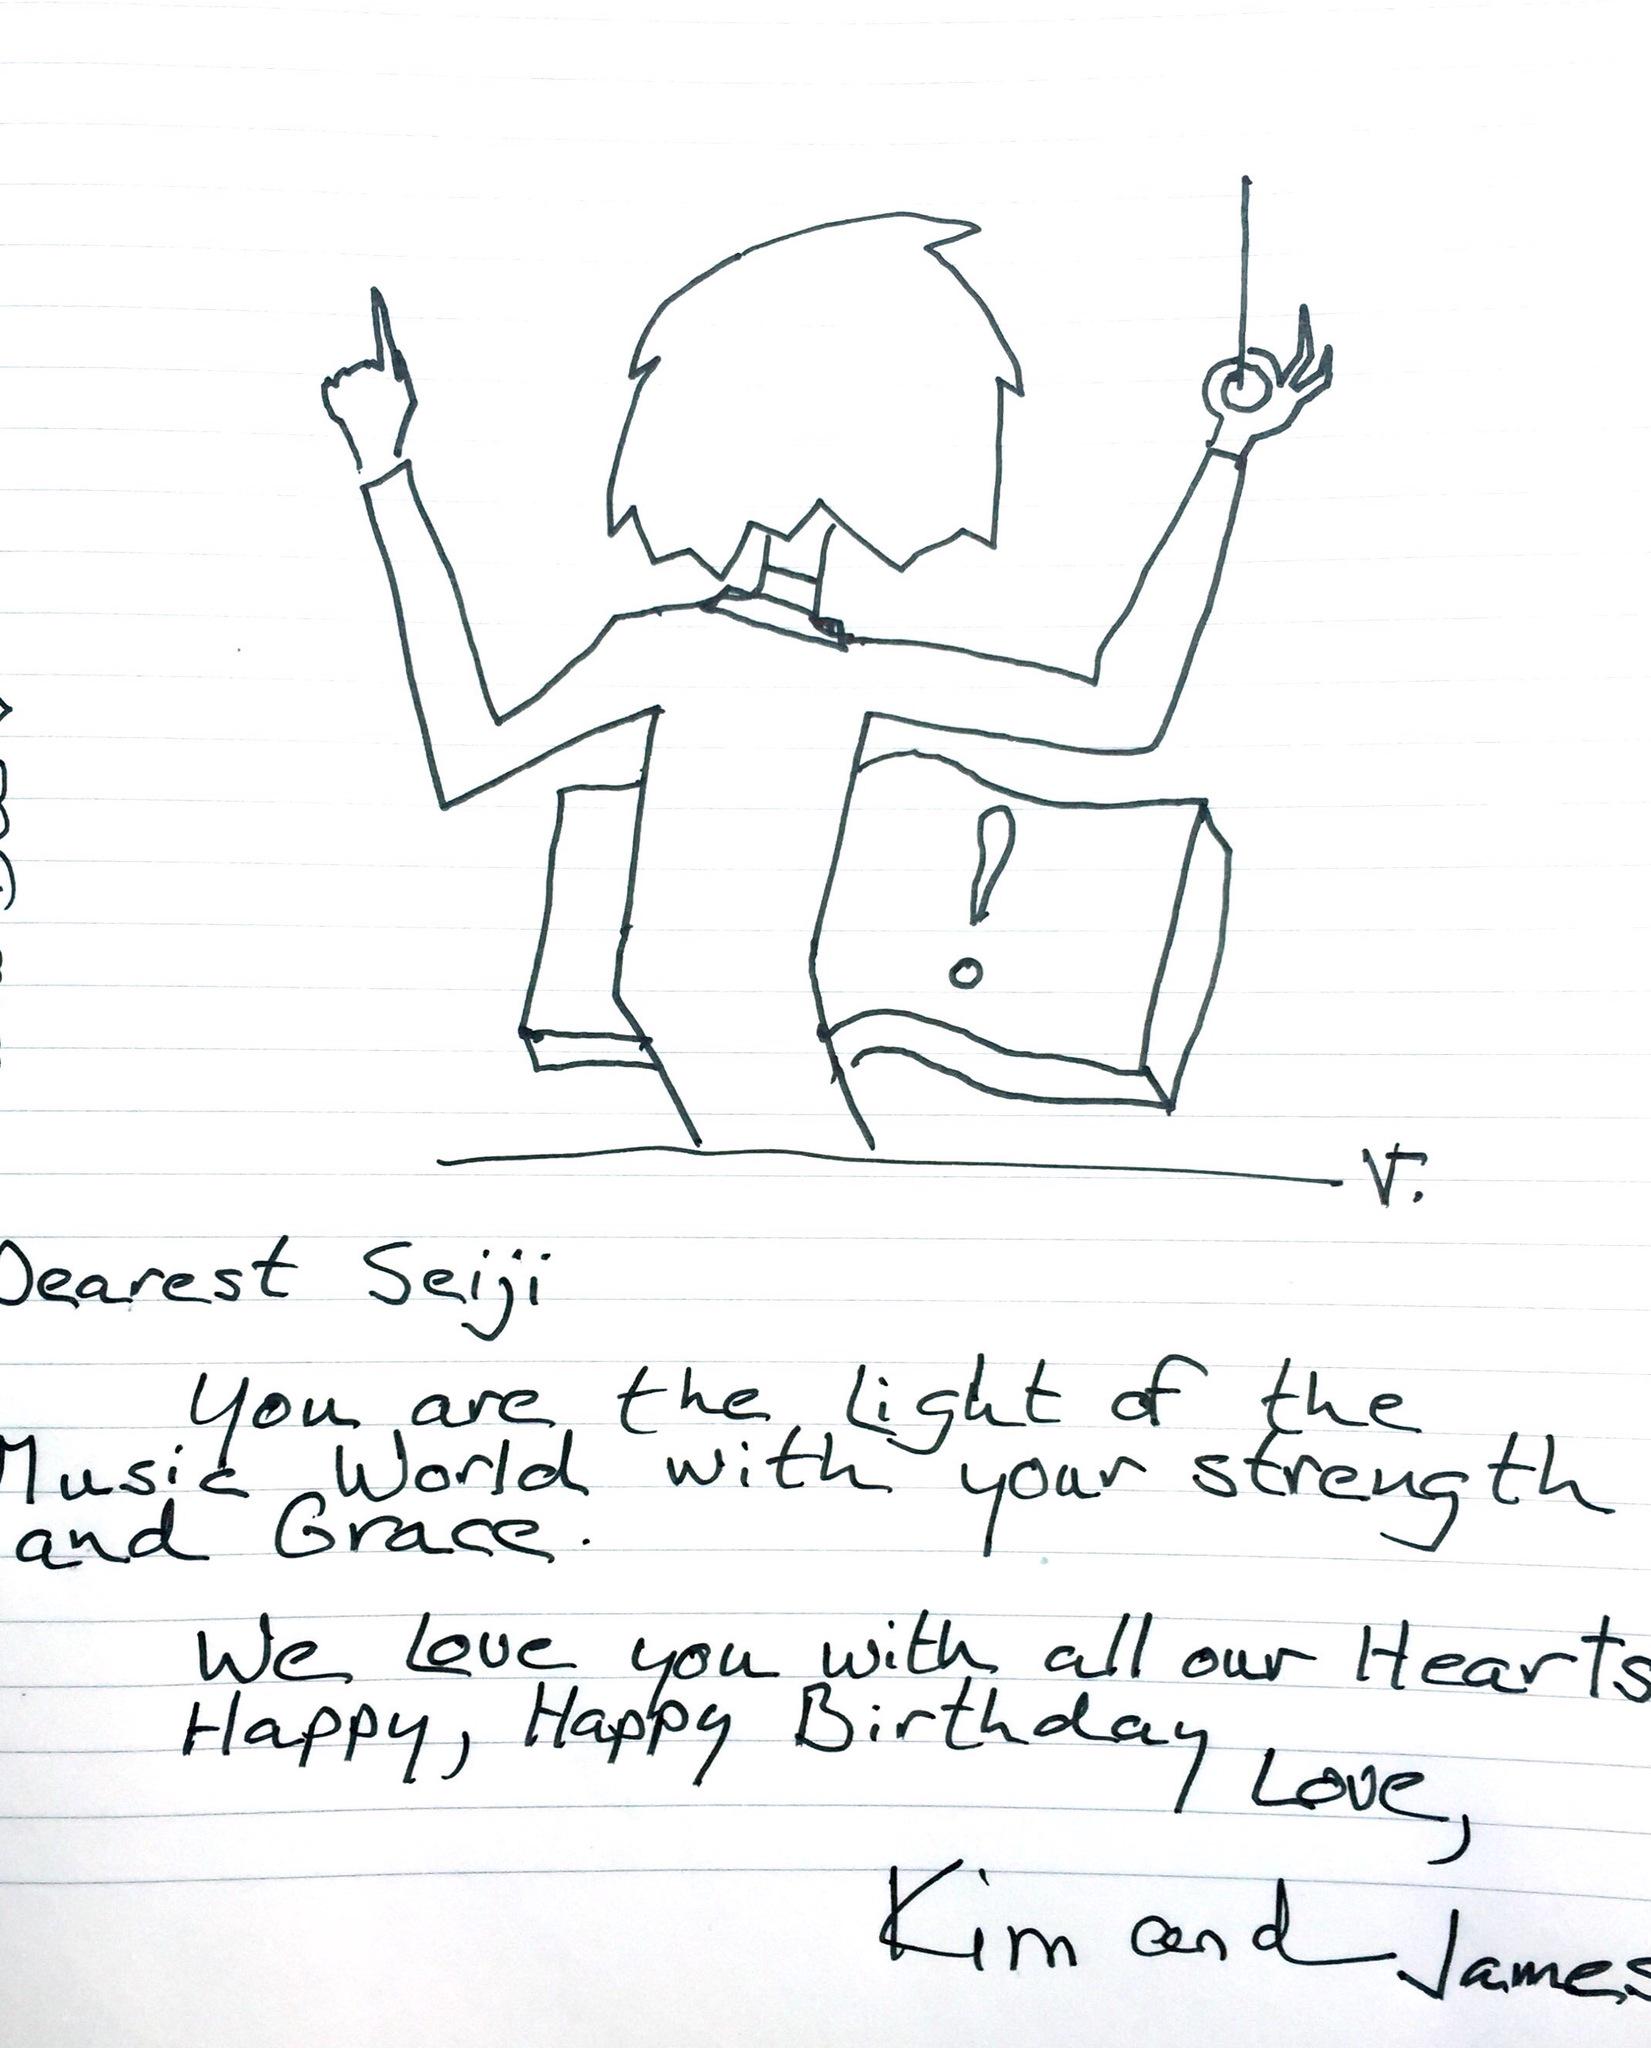 !
V.
Dearest Seiji
You are the light of the
Music World with your strength
and Grace.
We Love you with all our Hearts
Happy, Happy Birthday
Love,
Kim and James